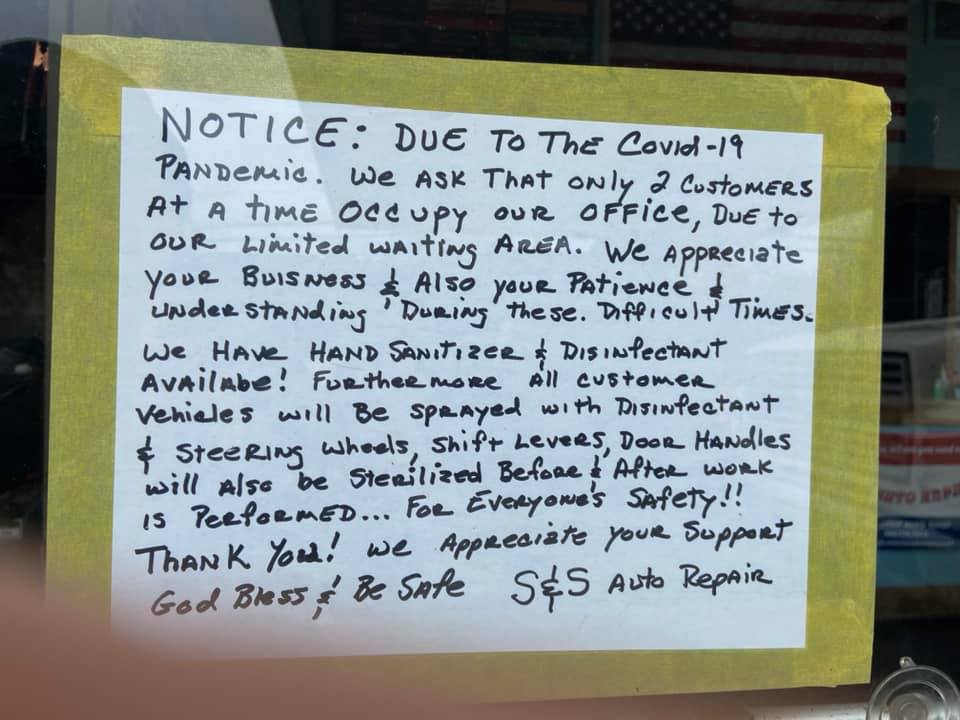 NOTICE: DUE TO THE COVID-19
PANDEMIC. WE ASK THAT ONLY 2 CUSTOMERS
AT A TIME OCCUPY OUR OFFICE, DUE TO
OUR LIMITED WAITING AREA. WE APPRECIATE
YOUR BUISNESS & ALSO YOUR PATIENCE &
UNDERSTANDING ' DURING THESE. DIFFICULT TIMES.
WE HAVE HAND SANITIZER & DISINFECTANT
AVAILABE! FURTHERMORE ALL CUSTOMER
VEHICLES WILL BE SPRAYED WITH DISINFECTANT
& STEERING WHEELS, SHIFT LEVERS, DOOR HANDLES
WILL ALSO BE STERILIZED BEFORE & AFTER WORK
IS PERFORMED... FOR EVERYONE'S SAFETY!!
THANK YOU! WE APPRECIATE YOUR SUPPORT
GOD BLESS & BE SAFE S&S AUTO REPAIR